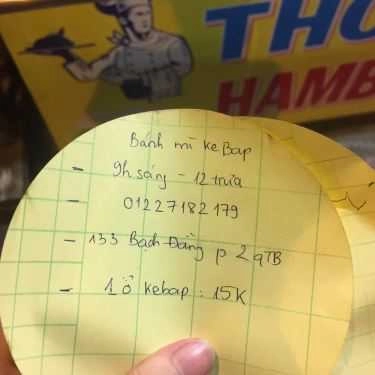 THO
HAMB
Bánh mì KeBap
- 9h sáng - 12 trưa
- 01227182179
- 133 Bạch Đằng p 2 qTB
- 1 ổ kebap : 15K